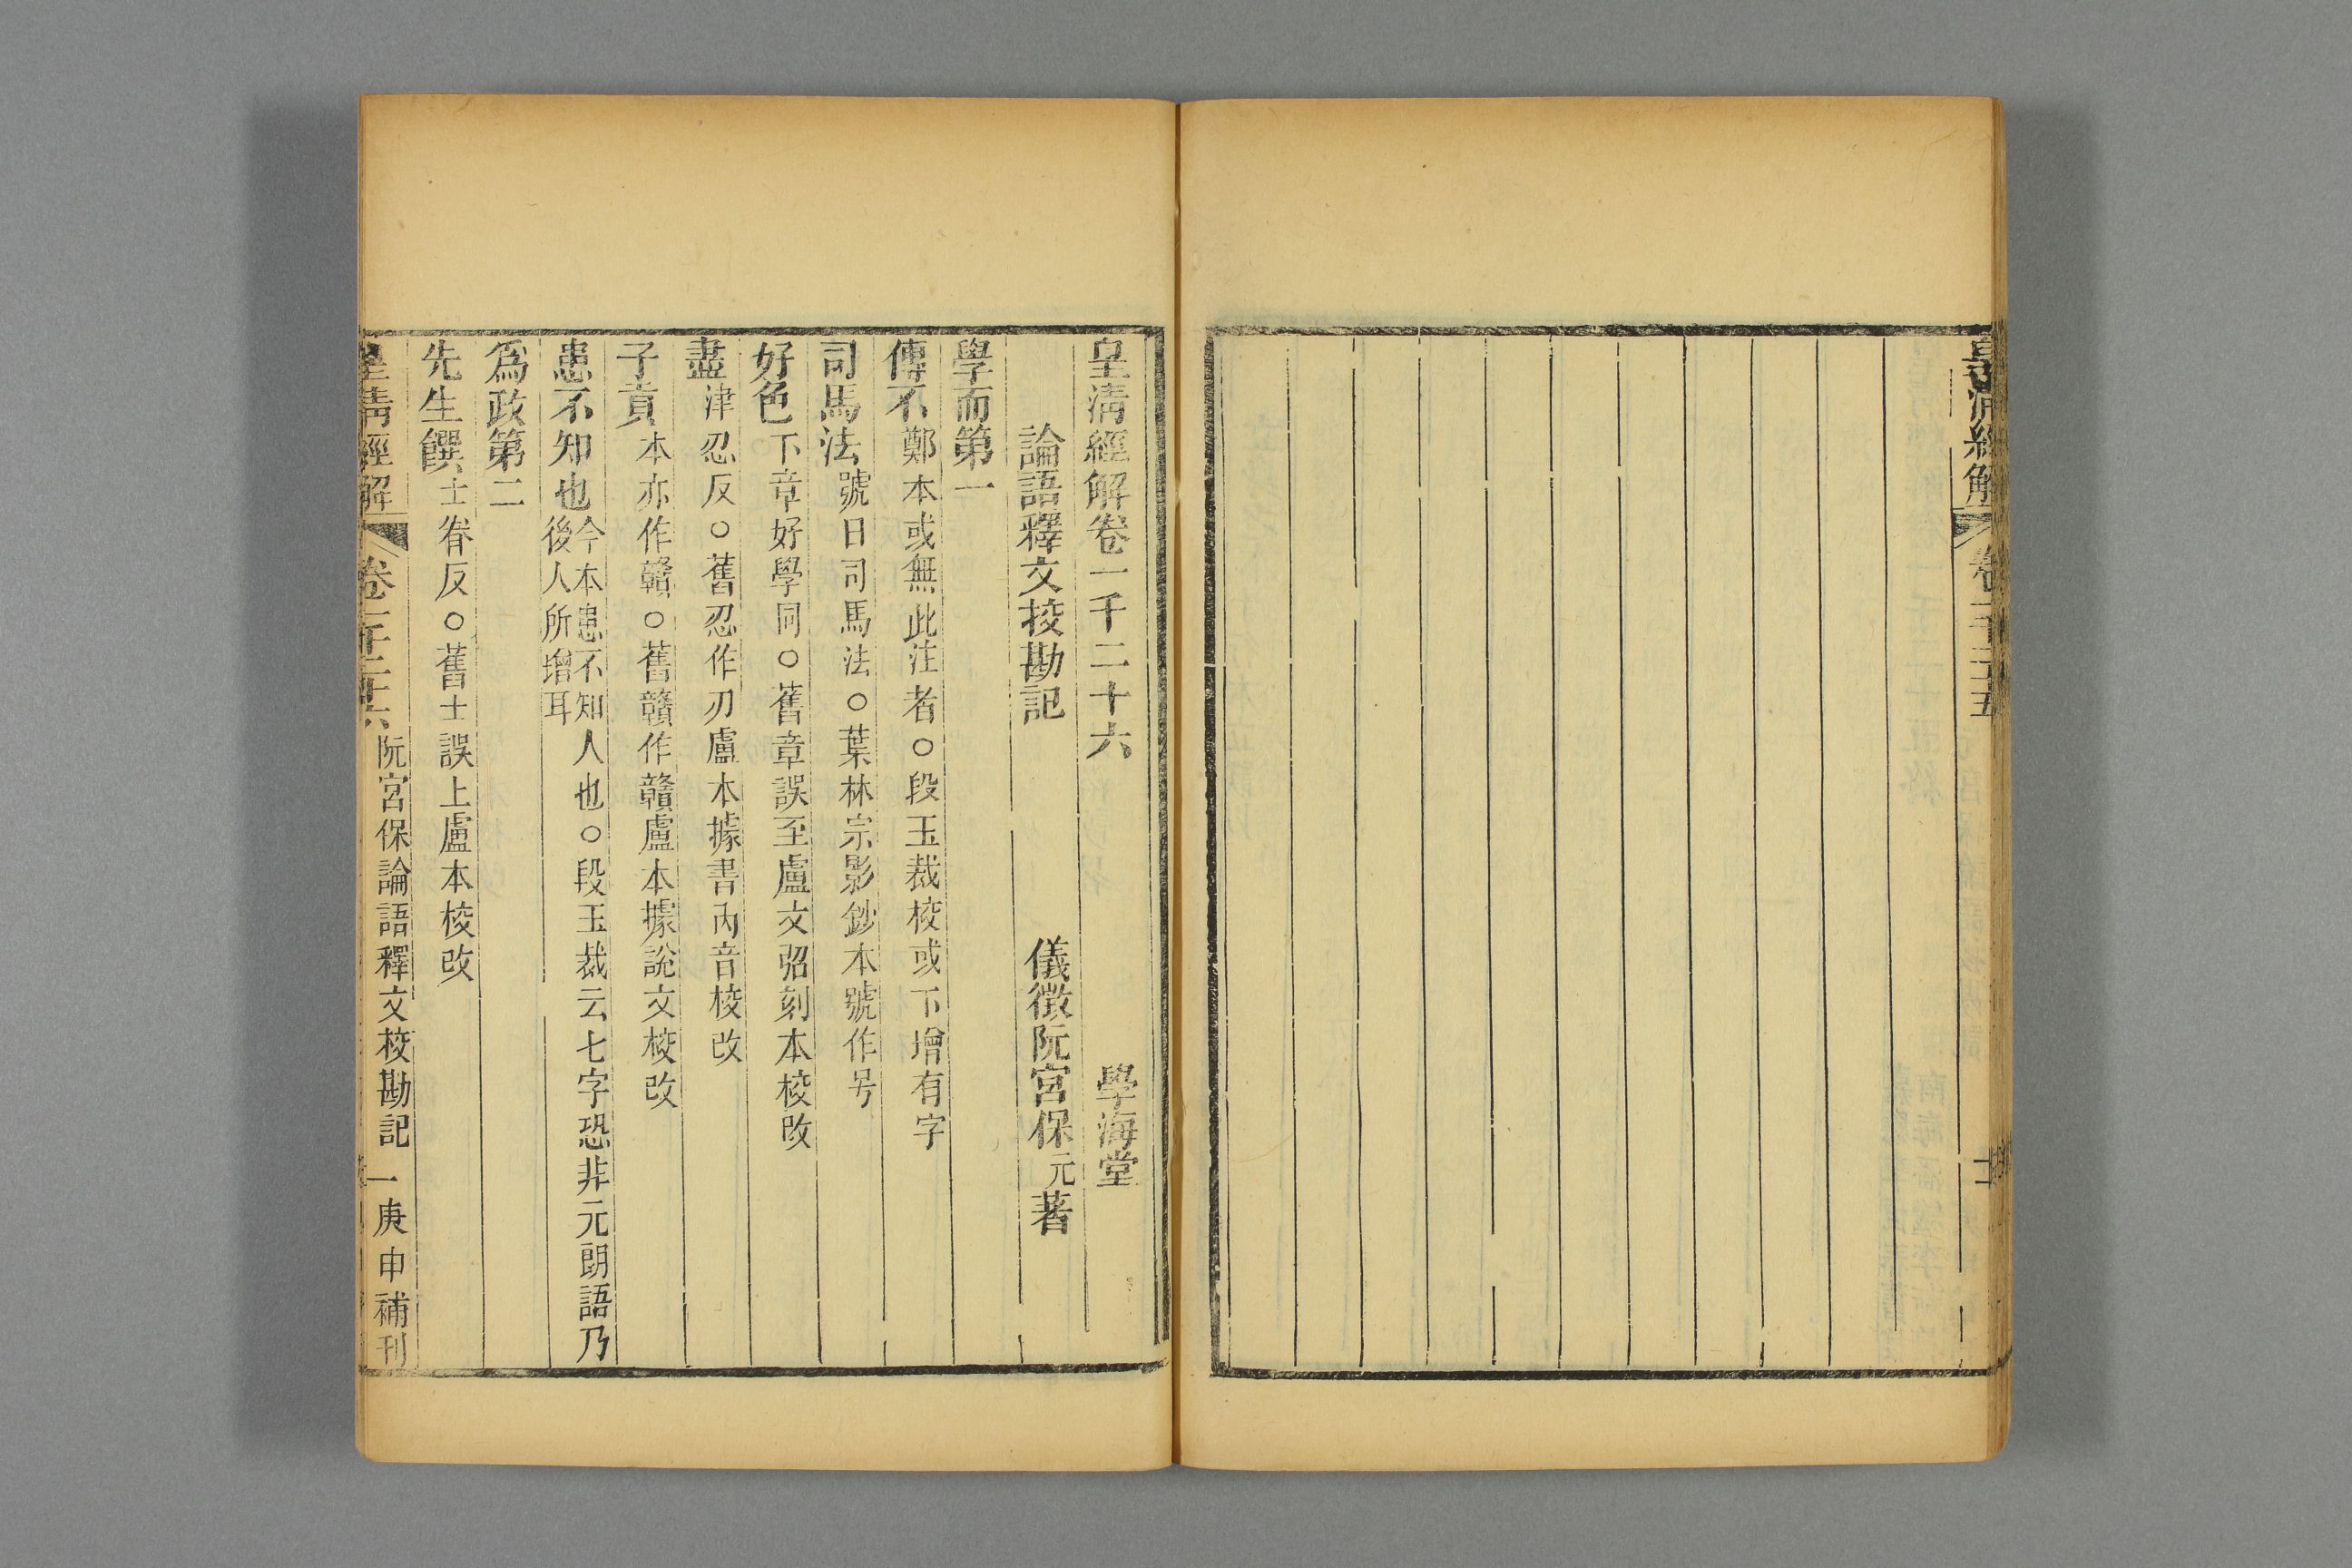 皇清經解 卷一千二十五
皇清經解卷一千二十六 學海堂
論語釋文挍勘記 儀徵阮宮保元著
學而第一
傳不鄭本或無此注者○段玉裁校或下增有字
司馬法號曰司馬法○葉林宗影鈔本號作号
好色下章好學同○舊章誤至盧文弨刻本校改
盡津忍反○舊忍作刃盧本據書內音校改
子貢本亦作贛○舊贛作贛盧本據說文校改
患不知也今本患不知人也○段玉裁云七字恐非元朗語乃
後人所增耳
爲政第二
先生饌士眷反○舊士誤上盧本校改
皇清經解 卷一千二十六 阮宮保論語釋文校勘記 一 庚申補刊